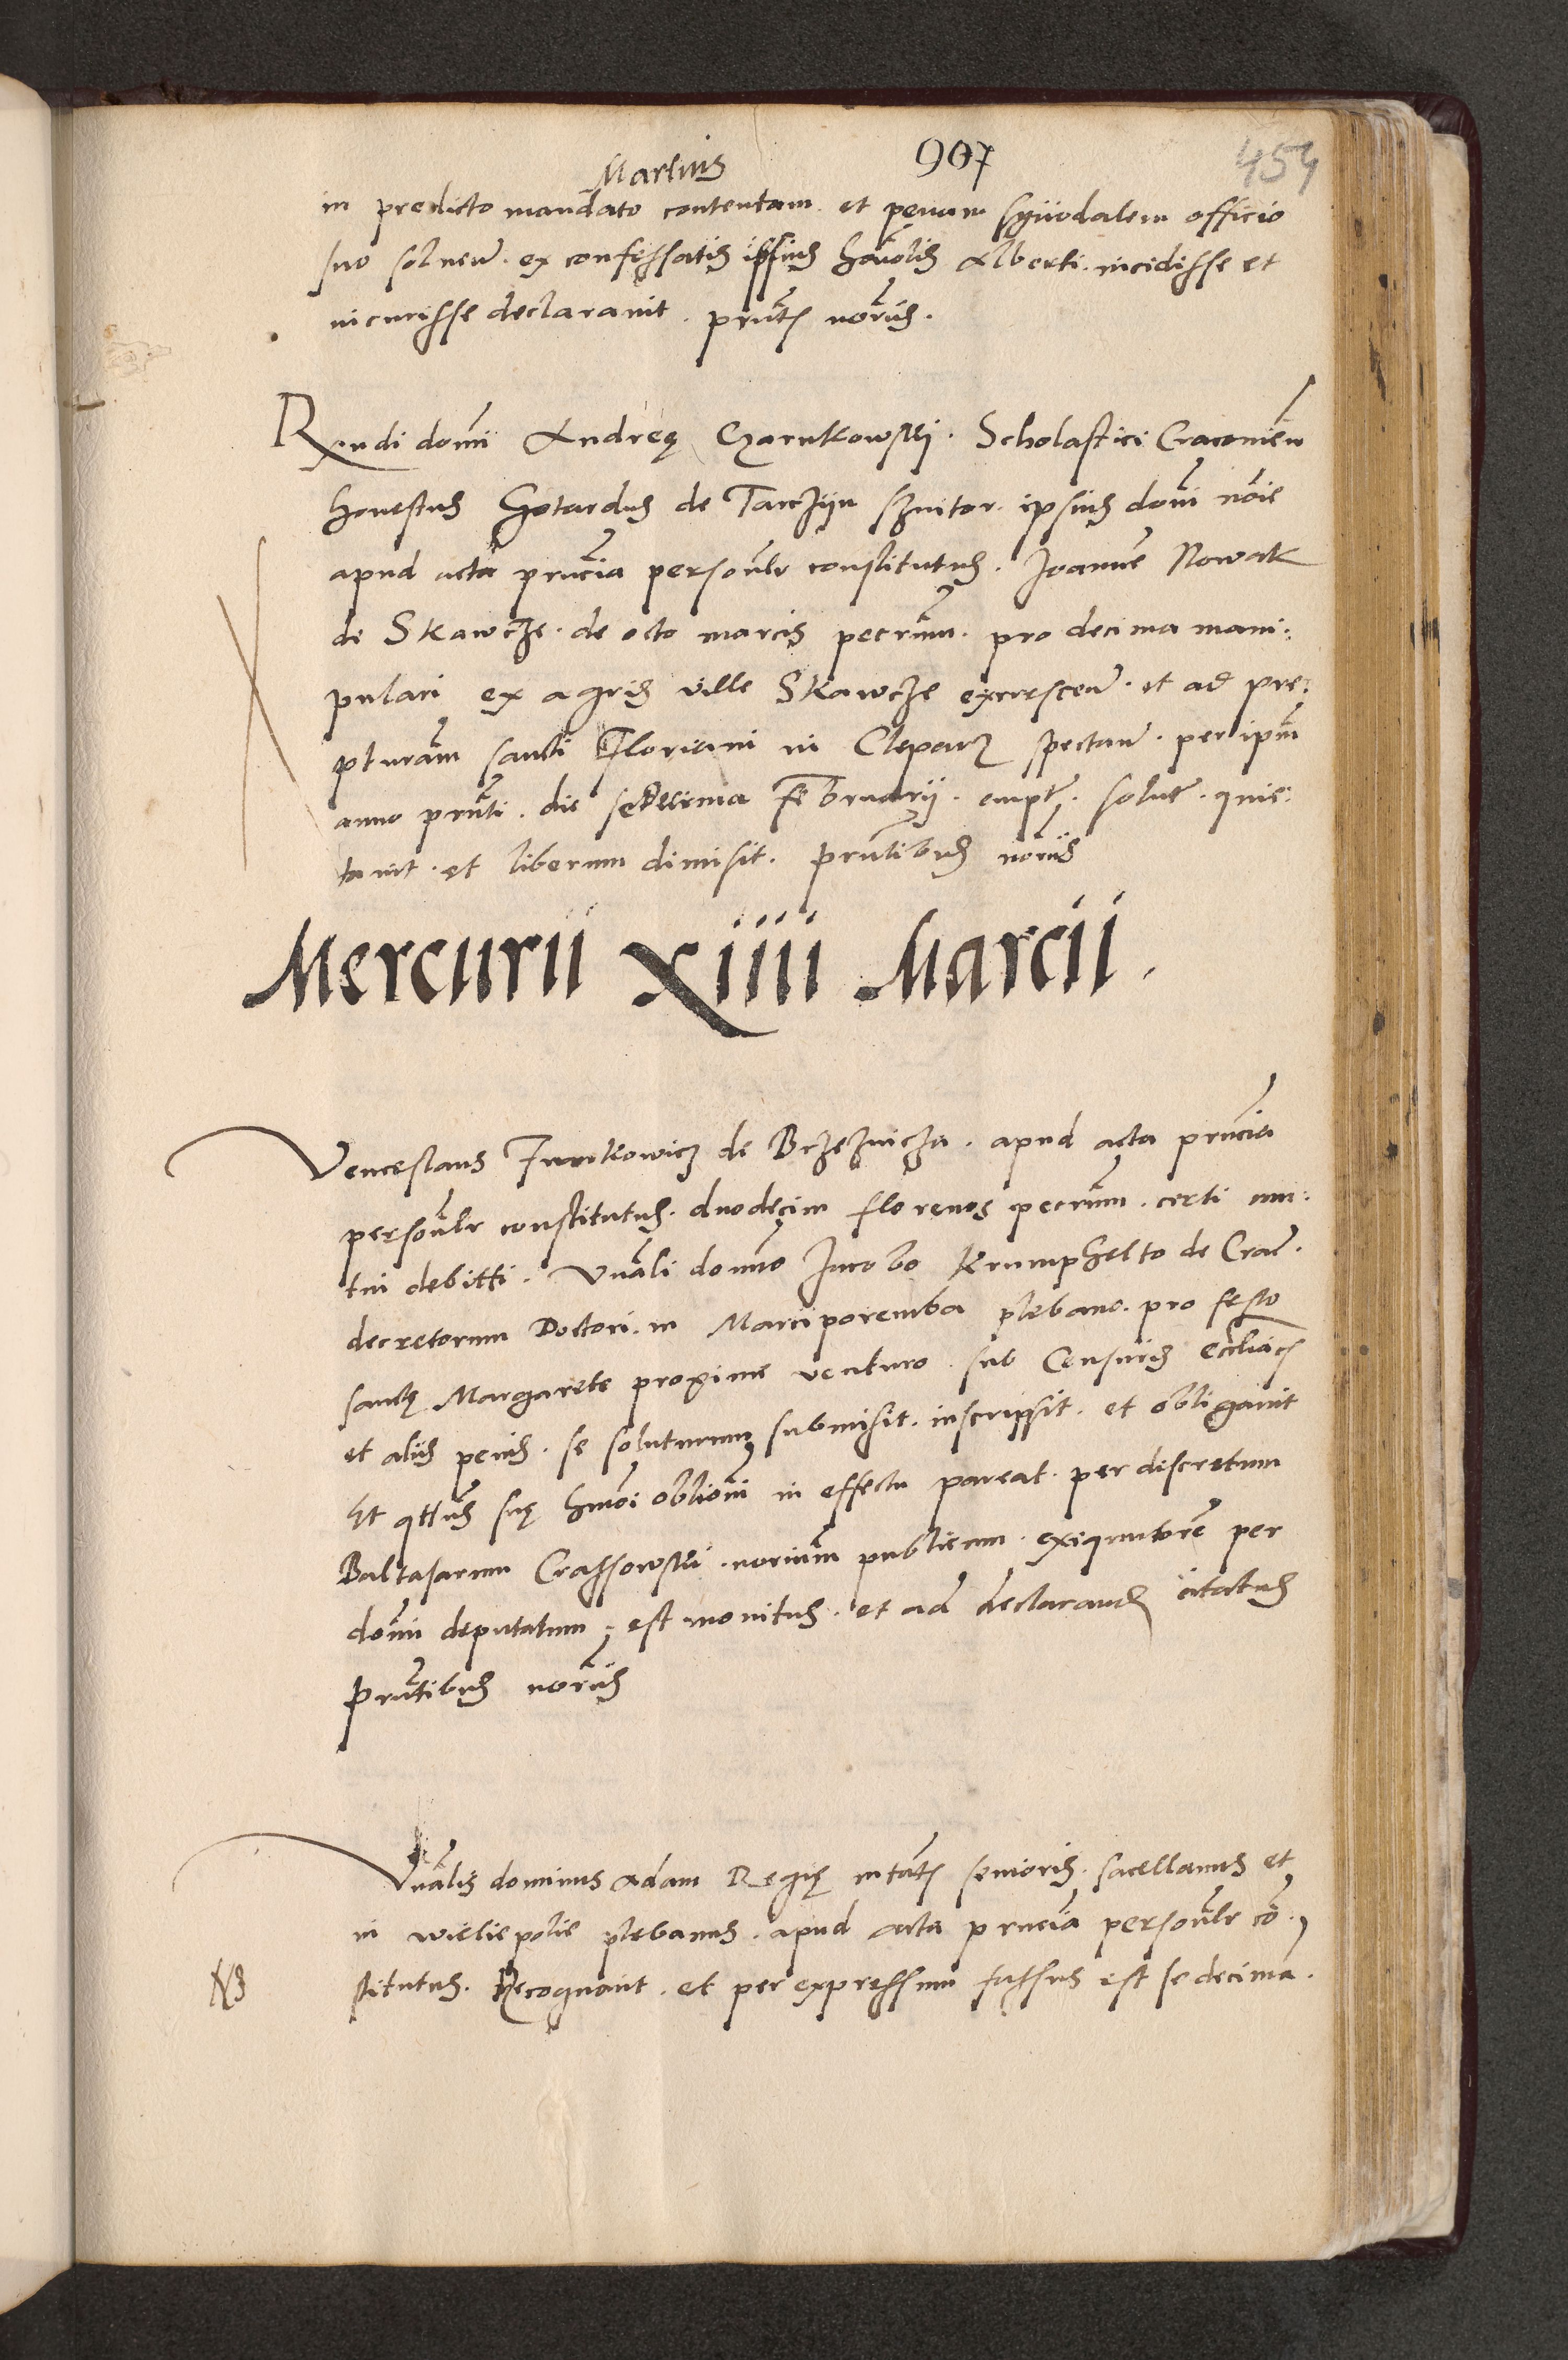 Martius
907
454
in predicto mandato contentam et penam synodalem officio
suo solven̄. ex confessatis ipsius hon̄olis Alberti. incidisse et
incurisse declaravit. prn̄tȝ nor̄iis.
Rn̄di dom̄i Andreę Czarnkowskj. Scholastici Cracovien̄
honestus Gotardus de Tarczyn s̄vitor. ipsius dom̄i nō̄ie
apud acta prn̄cia person̄lr constitutus. Joannē Nowak
de Skawcze. de octo marcis pecr̄um. pro decima mani:
pulari ex agris ville Skawcze excrescen̄. et ad pre:
pturam̄ sancti Floriani in Cleparz spectan̄. per ipm̄
anno prn̄ti. die septima Februarij. empt. solut̄. quie:
tavit. et liberum dimisit. prn̄tibus nor̄iis
Mercurii xiiii Marcii.
Venceslaus de Brzeznicza. apud acta prn̄cia
person̄lr constitutus. duodecim florenos pecr̄um. certi mu:
tui debitti. Vn̄ali domino Jacobo Krumphelto de Crac̄.
decretorum Doctori. in Marciporemba plebano. pro festo
sanctę Margarete proxime venturo. sub Censuris eccl̄iacȝ
et aliis penis. se soluturum submisit. inscripsit. et obligavit
Et qt̄tus suę hmōi oblīoni in effectu pareat. per discretum
Baltasarum Crassowski. nor̄ium publicum. exequutorē per
dom̄i deputatum; est monitus. et ad declarandȝ citatus
prn̄tibus nor̄iis
Vn̄alis dominus Adam Regię mtātȝ senioris. sacellanus et
in wielie polie plebanus. apud acta prn̄cia person̄lr cō.
stitutus. Recognovit. et per expressum fassus est se decima.
NB